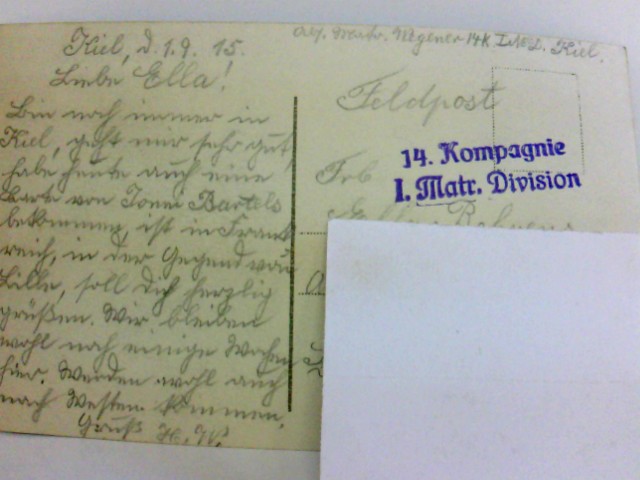 Kiel, d. 1.9. 15.
Liebe Ella!
Bin noch immer in
Kiel, geht mir sehr gut,
habe heute auch eine
Karte von Tonni Bartels
bekommen, ist in Frank
reich, in der Gegend von
Lille, soll Dich herzlig
grüßen. Wir bleiben
wohl noch einige Wochen
hier. Werden wohl auch
nach Westen kommen.
Gruß H. W.
Matr. Wegener 14 K. I. M. D. Kiel.
Feldpost
14. Kompagnie
I. Matr. Division
Frl